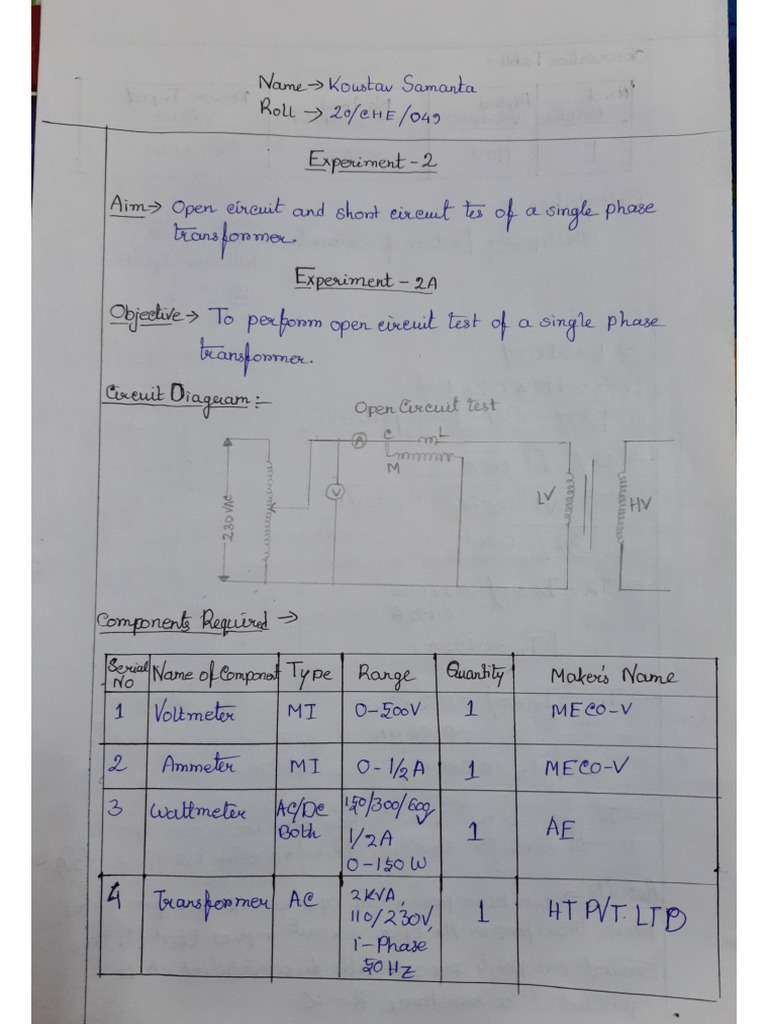 Name → Koustav Samanta
Roll → 20/CHE/049
Experiment - 2
Aim → Open circuit and short circuit tes of a single phase
transformer.
Experiment - 2A
Objective → To perform open circuit test of a single phase
transformer.
Circuit Diagram :-
Open Circuit test
A C L
M
V
230 VAC
LV
HV
Components Required →
Serial No Name of Component Type Range Quantity Maker's Name
1 Voltmeter MI 0-500V 1 MECO-V
2 Ammeter MI 0-1/2A 1 MECO-V
3 Wattmeter AC/DC Both 150/300/600V 1/2A 0-150W 1 AE
4 Transformer AC 2KVA, 110/230V, 1-Phase 50HZ 1 HT PVT. LTD